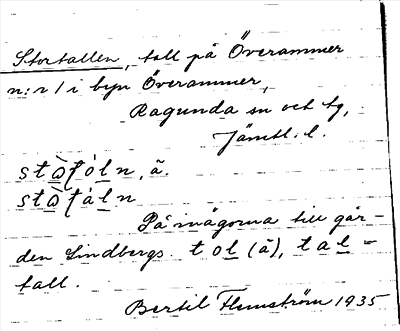 Stortallen, tall på Överammer
n:r 1 i byn Överammer,
Ragunda sn och tg,
Jämtl. l.
stò̱ʈól̲n, ä.
stò̱ʈál̲n
På ägorna till går-
den Lindbergs. tol̲ (ä), tal̲ =
tall.
Bertil Flemström 1935